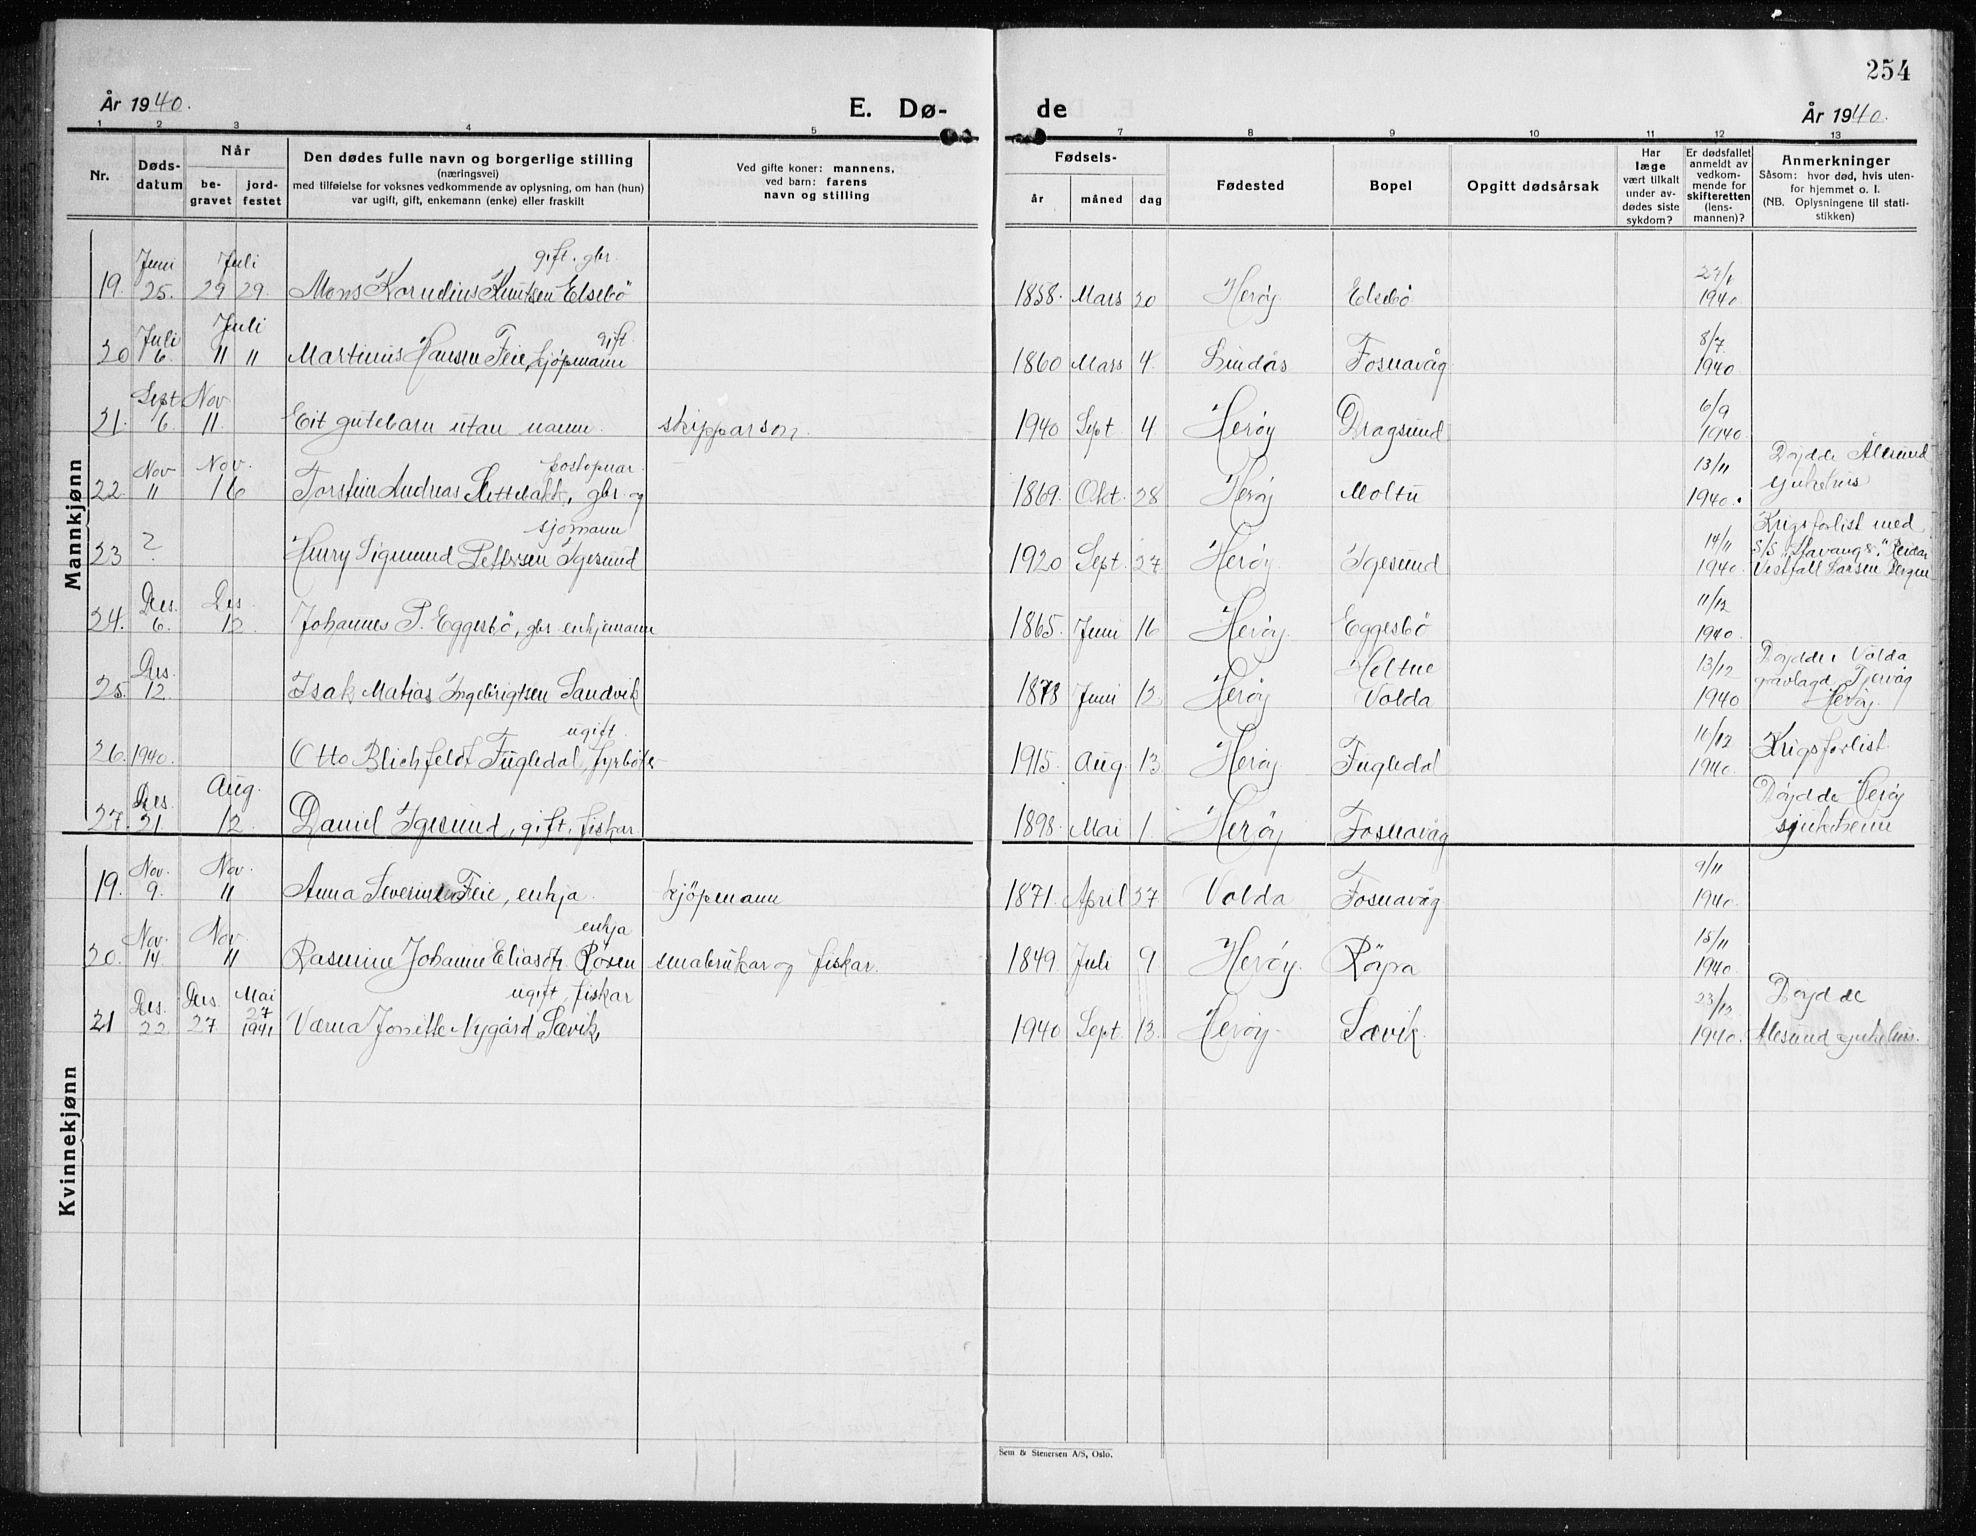 254
År 1940.
E. Dø-
de
År 1940.
1 2 3 4 5 7 8 9 10 11 12 13
Nr.
Døds-
datum
Når
be-
gravet
jord-
festet
Den dødes fulle navn og borgerlige stilling
(næringsvei)
med tilføielse for voksnes vedkommende av oplysning, om han (hun)
var ugift, gift, enkemann (enke) eller fraskilt
Ved gifte koner: mannens,
ved barn: farens
navn og stilling
Fødsels-
år måned dag
Fødested
Bopel
Opgitt dødsårsak
Har
læge
vært tilkalt
under av-
dødes siste
sykdom?
Er dødsfallet
anmeldt av
vedkom-
mende for
skifteretten
(lens-
mannen)?
Anmerkninger
Såsom: hvor død, hvis uten-
for hjemmet o. l.
(NB. Oplysningene til stati-
stikken)
Mannkjønn
Juni Juli gift. gbr.
19. 25. 29 29. Mons Kornelius Knutsen Elsebö 1858. Mars 20 Herøy Elsebö 1940.
Juli Juli gift. 8/7
20 6. 11 11 Martinus Hansen Feie, kjöpmann 1860 Mars 4. Lindås Fosnavåg 1940.
Sept Nov 6/9
21. 6. 11. Eit gutebarn utan namn. skipparson. 1940 Sept. 4 Herøy Dragsund 1940.
Nov Nov. postopnar. 13/11 Döydde Ålesund
22. 11 16 Torstein Andreas gbr. og 1869. Okt. 28 Herøy Moltu 1940. sjukehus
sjömann 14/11 Krigsforlist med
23 ? Henry Sigmund Pettersen Igesund 1920 Sept. 27 Herøy. Igesund 1940. S/S "Havanger," Reidar
Vestfall Larsen Bergen
Des. Des. 11/12
24. 6. 12. Johannes P. Eggesbö, gbr. enkjemann 1865. Juni 16 Herøy. Eggesbö 1940.
Des. Heltne 13/12 Döydde i Volda
25. 12. Isak Matias Ingebrigtsen Sandvik 1878 Juni 12. Herøy Volda 1940 gravlagd Tjervåg
Herøy.
ugift. 10/12
26. 1940. Otto Blichfeldt Fugledal, fyrböter 1915 Aug. 13. Herøy Fugledal 1940. Krigsforlist.
Des. Aug. Döydde Herøy
27. 21 12. Daniel Igesund, gift, fiskar 1898. Mai 1. Herøy Fosnavåg sjukeheim
Kvinnekjønn
Nov. Nov. 9/11
19. 9. 11 Anna Severine Feie, enkja. kjöpmann 1871. April 27 Volda Fosnavåg 1940.
Nov. Nov. enkja 15/11
20. 14 11 Rasmine Johanne Eliasdt. Røsen småbrukar og fiskar. 1849. Juli 9 Herøy. Röyra 1940.
Des. Des. Mai ugift, fiskar 23/12 Döydde
21 22. 27 27 1941 Værna Jonette Nygård Sævik, 1940 Sept. 13. Herøy. Sævik. 1940. Ålesund sjukehus.
Sem & Stenersen A/S, Oslo.